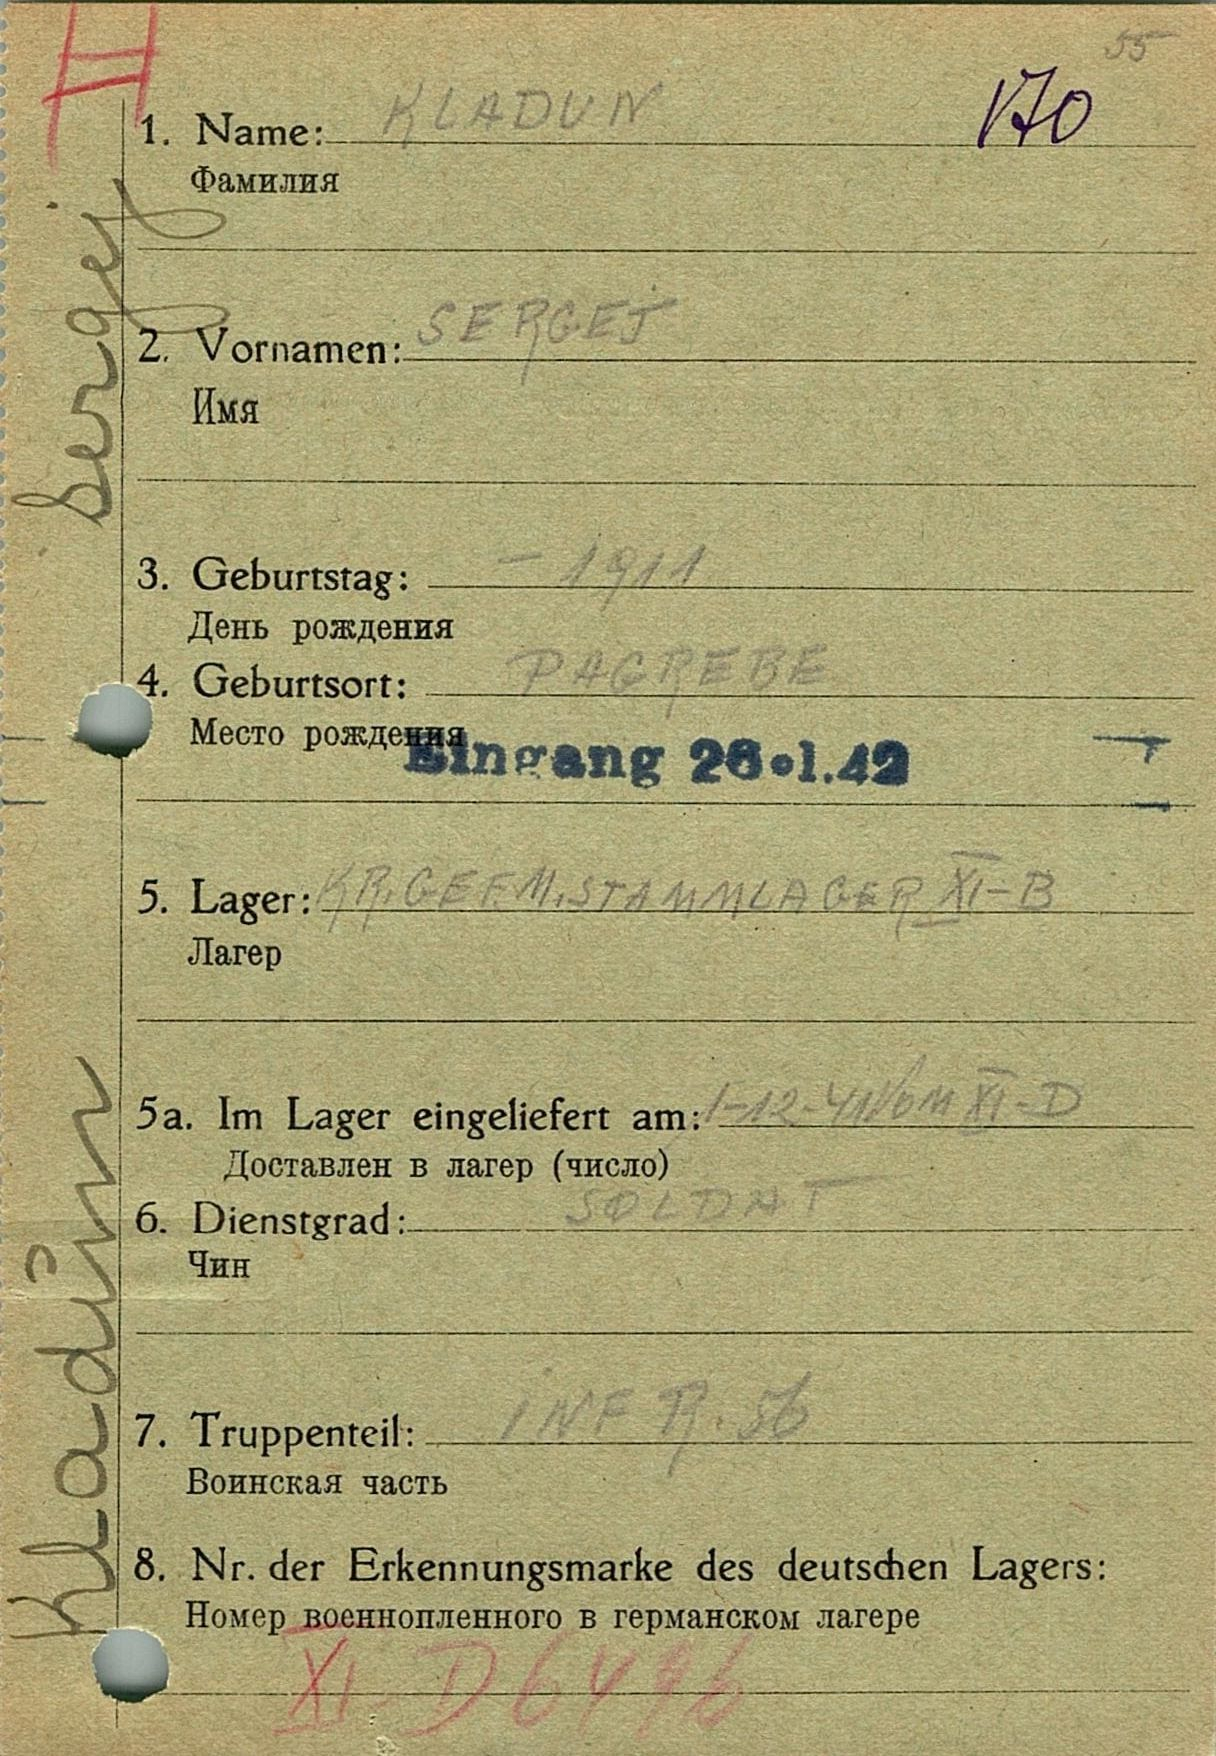 55
170
1. Name: KLADUN
Фамилия
2. Vornamen: SERGEJ
Имя
3. Geburtstag: – 1911
День рождения
4. Geburtsort: PAGREBE
Место рождения
Eingang 26.1.42
5. Lager: KR. GEF. M. STAMMLAGER XI-B
Лагер
5a. Im Lager eingeliefert am: 1-12-41 VOM XI-D
Доставлен в лагер (число)
6. Dienstgrad: SOLDAT
Чин
7. Truppenteil: INF R. 56
Воинская часть
8. Nr. der Erkennungsmarke des deutschen Lagers:
Номер военнопленного в германском лагере
XI-D 6496
Kladŭn Sergej